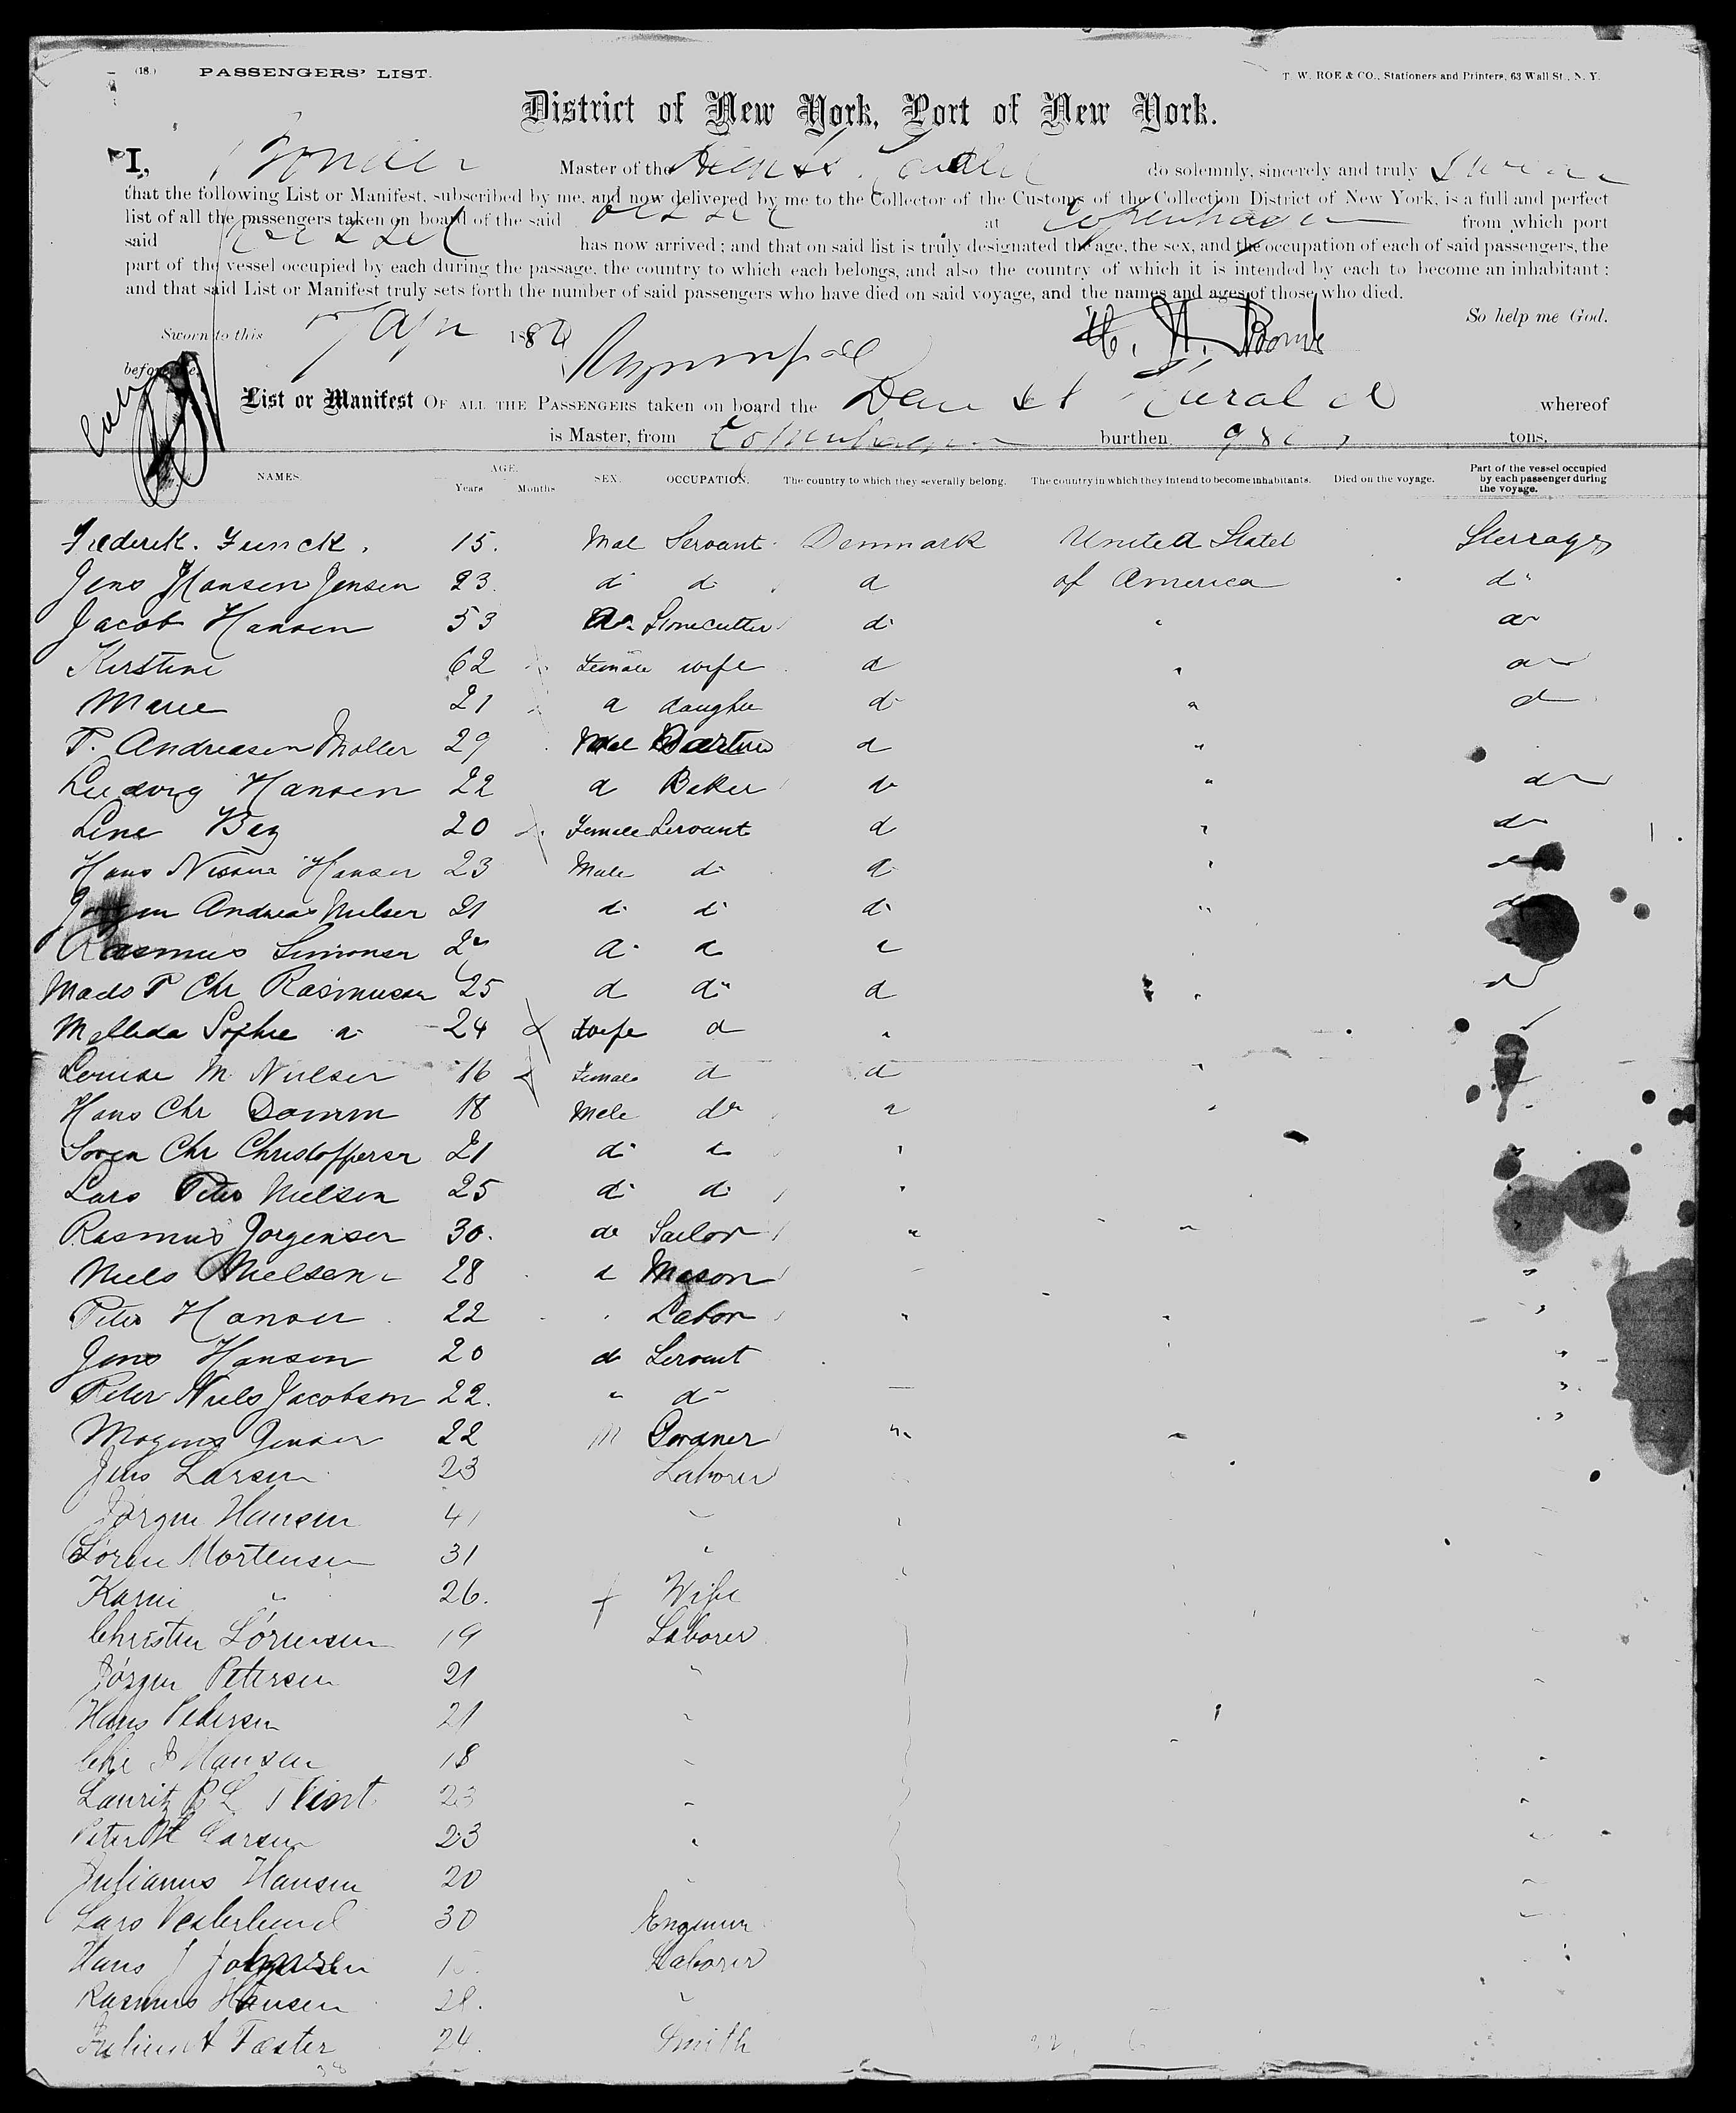 (18.) PASSENGERS' LIST. T. W. ROE & CO., Stationers and Printers, 63 Wall St., N. Y.
District of New York, Port of New York.
I, Master of the do solemnly, sincerely and truly Swear
that the following List or Manifest, subscribed by me, and now delivered by me to the Collector of the Customs of the Collection District of New York, is a full and perfect
list of all the passengers taken on board of the said vessel at Copenhagen from which port
said vessel has now arrived; and that on said list is truly designated the age, the sex, and the occupation of each of said passengers, the
part of the vessel occupied by each during the passage, the country to which each belongs, and also the country of which it is intended by each to become an inhabitant;
and that said List or Manifest truly sets forth the number of said passengers who have died on said voyage, and the names and ages of those who died.
So help me God.
Sworn to this 7 Apr 188
before me,
List or Manifest OF ALL THE PASSENGERS taken on board the whereof
is Master, from Copenhagen burthen tons.
NAMES. AGE. Years Months SEX. OCCUPATION. The country to which they severally belong. The country in which they intend to become inhabitants. Died on the voyage. Part of the vessel occupied by each passenger during the voyage.
Frederik. Funck. 15. Mal Servant Denmark United States Sterrage
Jens Hansen Jensen 23. do do do of America do
Jacob Hansen 53 do Stonecutter do " do
Kirstine 62 Female wife do " do
Marie 21 do daughter do " do
P. Andreasen Moller 29 Mal do "
Ludvig Hansen 22 do Baker do " do
Line Bay 20 Female Servant do " do
Hans Hansen 23 Male do do " do
Jorgen Andreas Nielsen 21 do do do " do
Rasmus Simonsen do do "
Mads P Chr Rasmussen 25 do do do " do
Sophie do 24 Wife do "
Louise M. Nielsen 16 Female do do "
Hans Chr Damm 18 Male do " "
Soren Chr Christoffersen 21 do do "
Lars Peter Nielsen 25 do do "
Rasmus Jorgensen 30. do Sailor " "
Niels Nielsen 28 do Mason "
Peter Hansen 22 " Labor " "
Jens Hansen 20 do Servant "
Peter Niels Jacobson 22. " do "
Mogens Jensen 22 M Gardner " "
Jens Larsen 23 Laborer
Jörgen Hansen 41 "
Sören Mortensen 31 "
Karen " 26. Wife
Christen Sörensen 19 Laborer
Jörgen Petersen 21 "
Hans Pedersen 21 "
Chr J Hansen 18 "
Lauritz 23 "
Peter Larsen 23 "
Julianus Hansen 20 "
Lars Vesterlund 30 Engineer
Hans J Johansen Laborer
Rasmus Hansen 28. "
Fæster 24. Smith
38